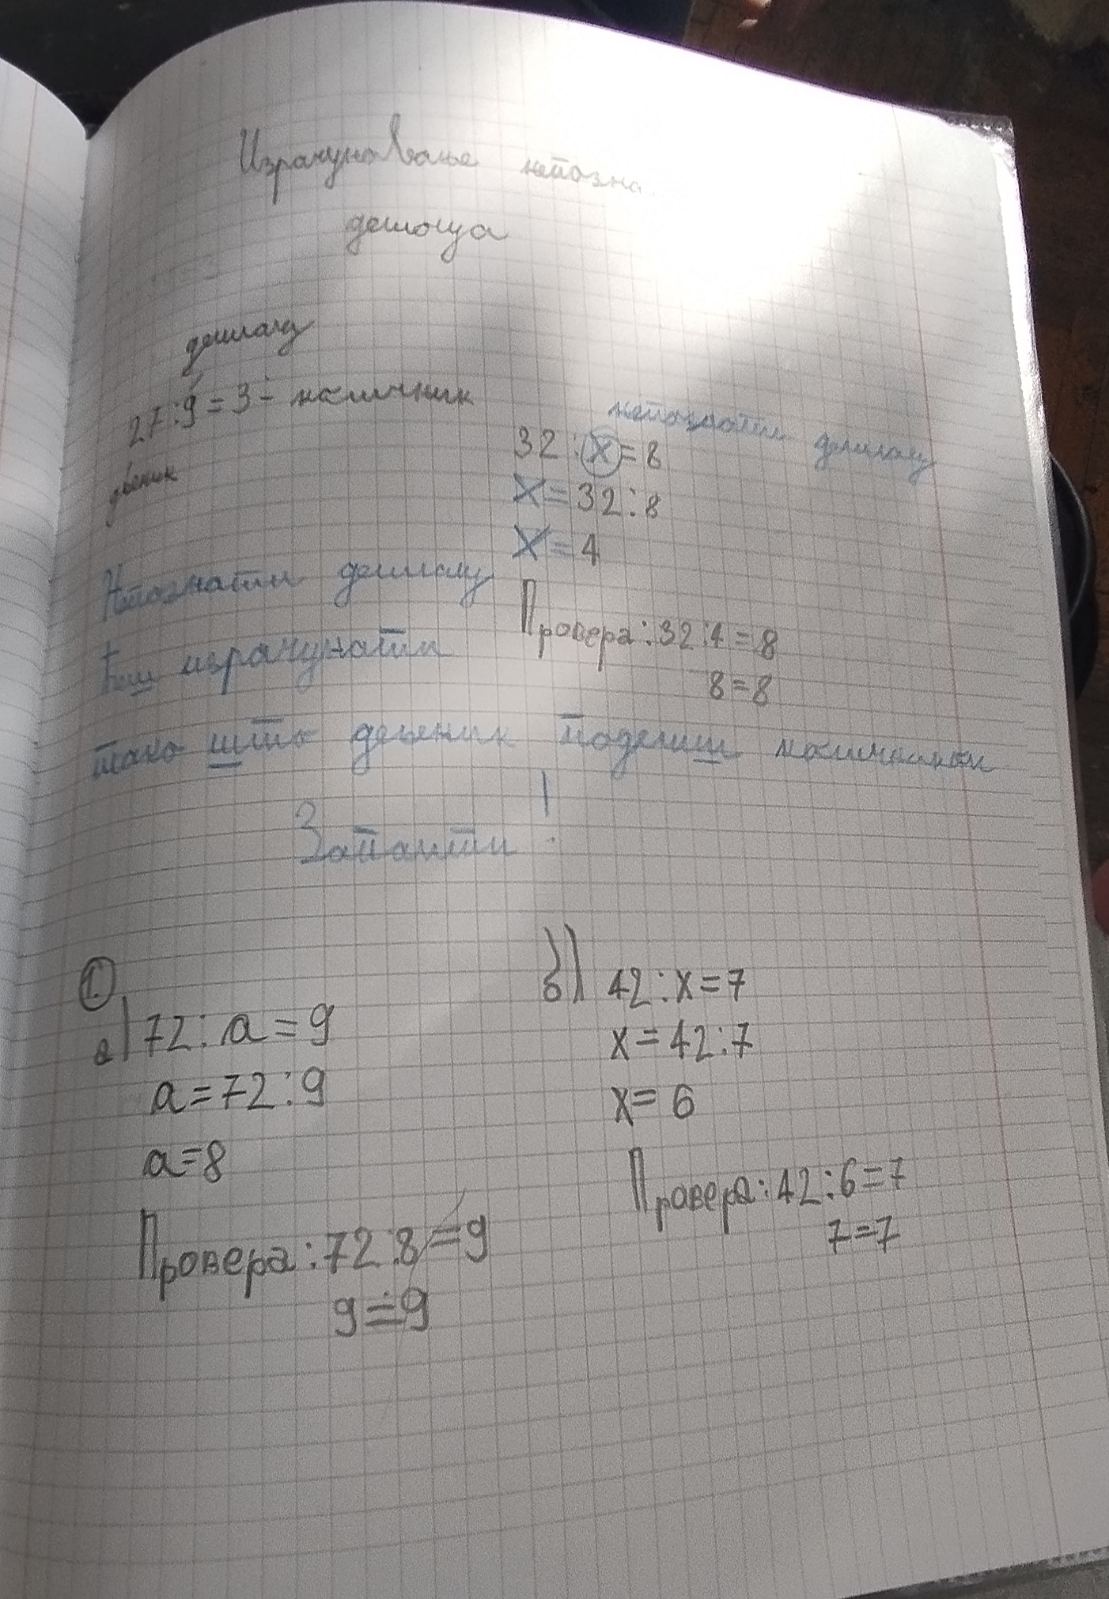 Израчунавање непозна
делиоца
делилац
27:9=3- количник
дељеник
непознати делилац
32:x=8
x=32:8
x=4
Провера:32:4=8
8=8
Непознати делилац
ћеш израчунати
тако што дељеник поделиш количником
Запамти!
1.
а) 72:a=9
a=72:9
a=8
Провера:72:8=9
9=9
б) 42:x=7
x=42:7
x=6
Провера:42:6=7
7=7